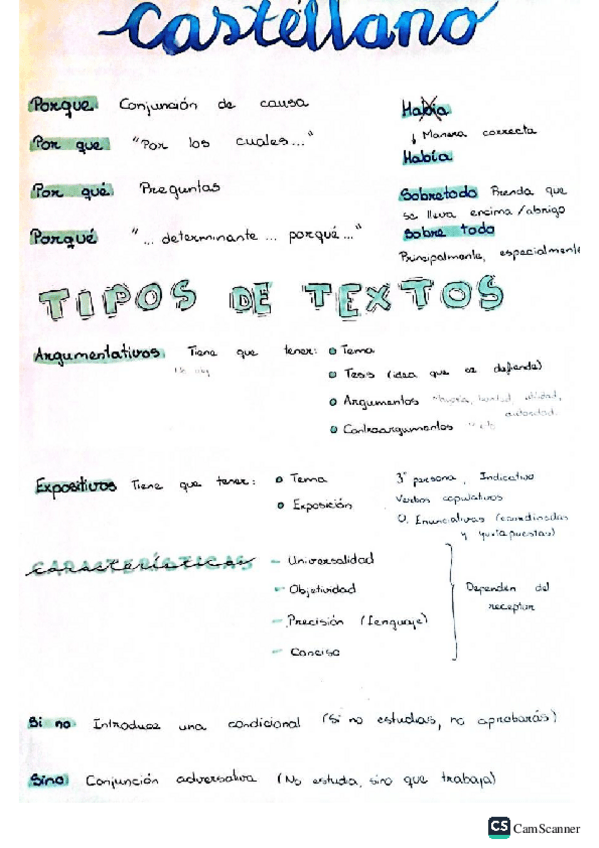 Castellano
Porque Conjunción de causa
Por que "Por los cuales..."
Por qué Preguntas
Porqué "... determinante ... porqué..."
Habia
↓ Manera correcta
Había
Sobretodo Prenda que
se lleva encima/abrigo
Sobre todo
Principalmente, especialmente
TIPOS DE TEXTOS
Argumentativos Tiene que tener: • Tema
• Tesis (idea que se defende)
• Argumentos autoridad.
• Contraargumentos
Expositivos Tiene que tener: • Tema
• Exposición
3ª persona, Indicativo
Verbos copulativos
O. Enunciativas (coordinadas
y yuxtapuestas)
CARACTERÍSTICAS
– Universalidad
– Objetividad
– Precisión (lenguaje)
– Conciso
Dependen del
receptor
Si no Introduce una condicional (Si no estudias, no aprobarás)
Sino Conjunción adversativa (No estudia, sino que trabaja)
CS CamScanner